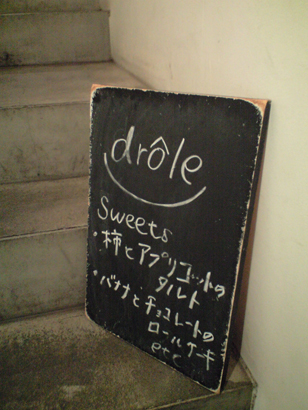 drôle
Sweets
・柿とアプリコットの
タルト
・バナナとチョコレートの
ロールケーキ
etc